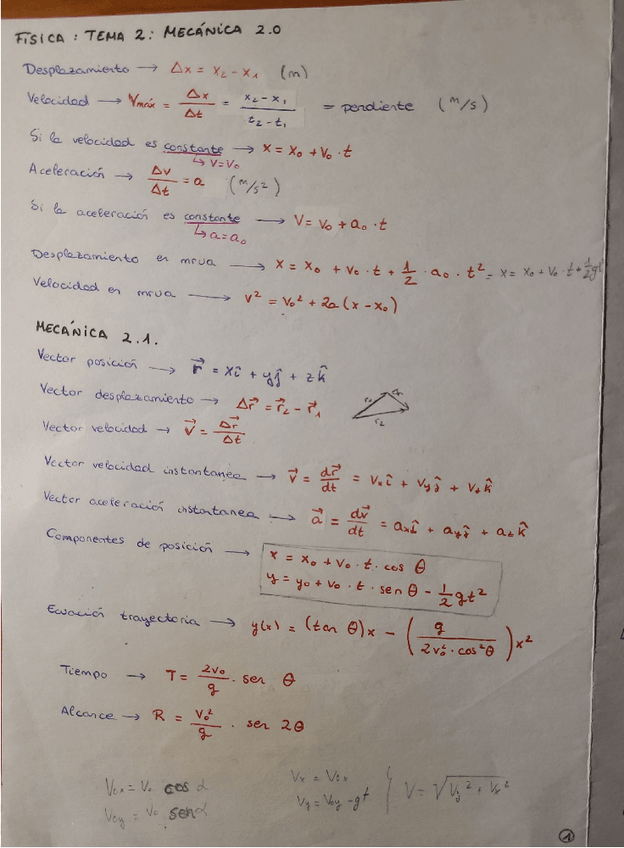 FÍSICA: TEMA 2: MECÁNICA 2.0
Desplazamiento → Δx = x₂ - x₁ (m)
Velocidad → Vmáx = Δx/Δt = (x₂ - x₁)/(t₂ - t₁) = pendiente (m/s)
Si la velocidad es constante → x = x₀ + v₀ · t
↳ v = v₀
Aceleración → Δv/Δt = a (m/s²)
Si la aceleración es constante → V = V₀ + a₀ · t
↳ a = a₀
Desplazamiento en mrua → x = x₀ + v₀ · t + 1/2 · a₀ · t² = x = x₀ + v₀ · t + 1/2 gt²
Velocidad en mrua → v² = v₀² + 2a (x - x₀)
MECÁNICA 2.1.
Vector posición → r⃗ = xî + yĵ + zk̂
Vector desplazamiento → Δr⃗ = r⃗₂ - r⃗₁
Vector velocidad → v⃗ = Δr⃗/Δt
Vector velocidad instantanea → v⃗ = dr⃗/dt = Vxî + Vyĵ + Vzk̂
Vector aceleración instantanea → a⃗ = dv⃗/dt = axî + ayĵ + azk̂
Componentes de posición → x = x₀ + v₀ · t · cos θ
y = y₀ + v₀ · t · sen θ - 1/2 gt²
Ecuación trayectoria → y(x) = (tan θ)x - (g/(2v₀² · cos²θ)) x²
Tiempo → T = 2v₀/g · sen θ
Alcance → R = V₀²/g · sen 2θ
V₀x = V₀ cos α
V₀y = V₀ sen α
Vx = V₀x
Vy = V₀y - gt
V = √(Vy² + Vx²)
1